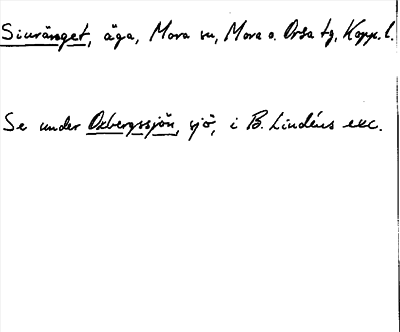 Siuränget, äga, Mora sn, Mora o. Orsa tg, Kopp. l.
Se under Oxbergssjön, sjö, i B. Lindéns exc.